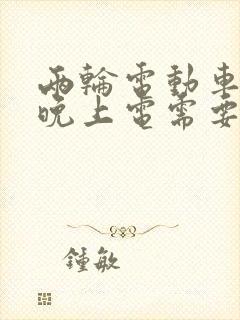 兩輪電動車
晚上電需要
鍾敏